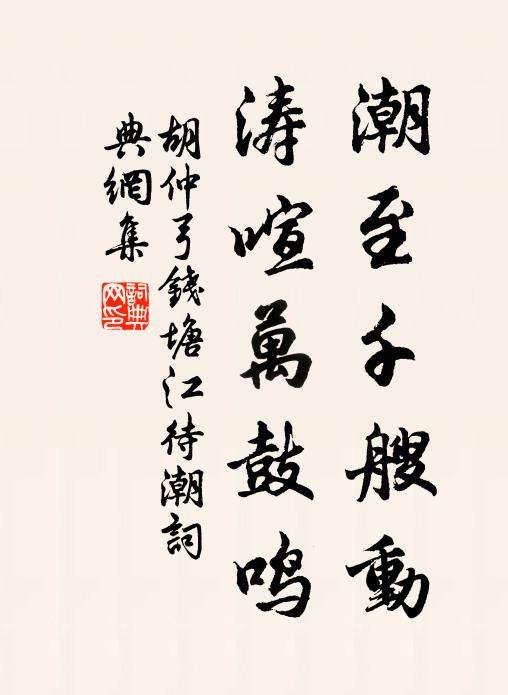 潮至千艘動
涛喧萬鼓鸣
胡仲弓錢塘江待潮詞
典網集
詞典
网印